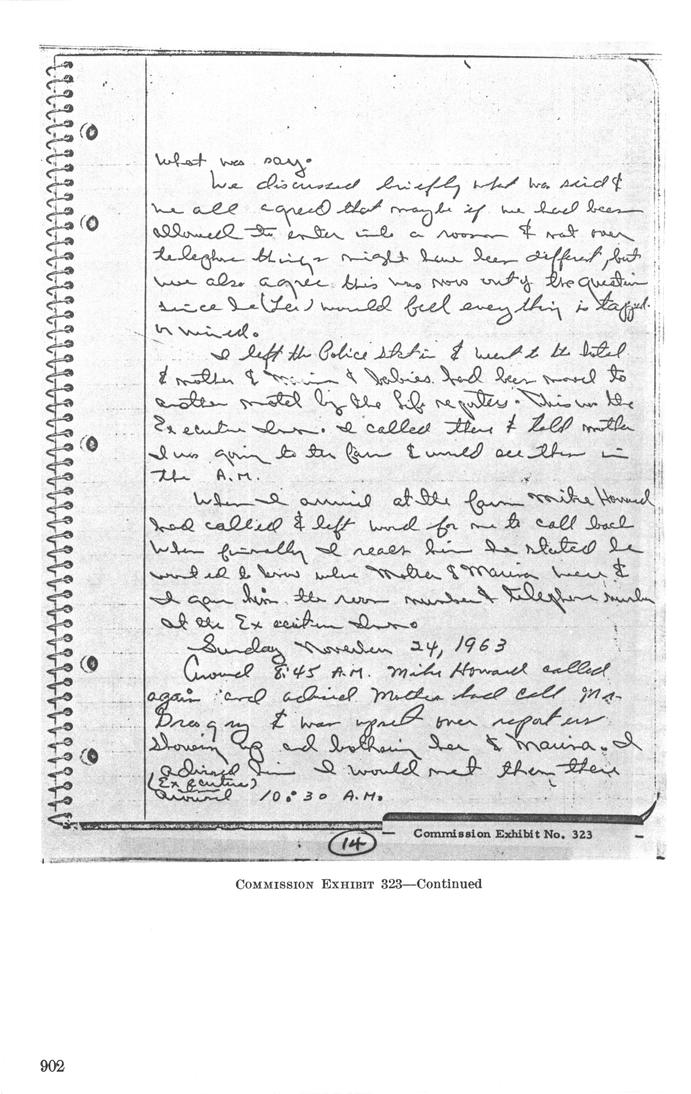 what was say.
We discussed briefly what was said &
we all agreed that maybe if we had been
allowed to enter into a room & not over
telephone things might have been different, but
we also agree this was now out of the question
since he (Lee) would feel everything is tapped
or wired.
I left the Police Station & went to the hotel
& mother & & babies had been moved to
another motel by the Life reporters. This was the
Executive Inn. I called there & told mother
I was going to the farm & would see them in
the A.M.
When I arrived at the farm Mike Howard
had called & left word for me to call back
When finally I reach him he stated he
wanted to know where Mother & Marina were &
I gave him the room number & telephone number
at the Executive Inn.
Sunday November 24, 1963
Around 8:45 A.M. Mike Howard called
again and advised Mother had call Mr.
& was upset over reporters
showing up and bothering her & Marina. I
advised him I would met them there
(Executive)
around 10:30 A.M.
14
Commission Exhibit No. 323
COMMISSION EXHIBIT 323—Continued
902